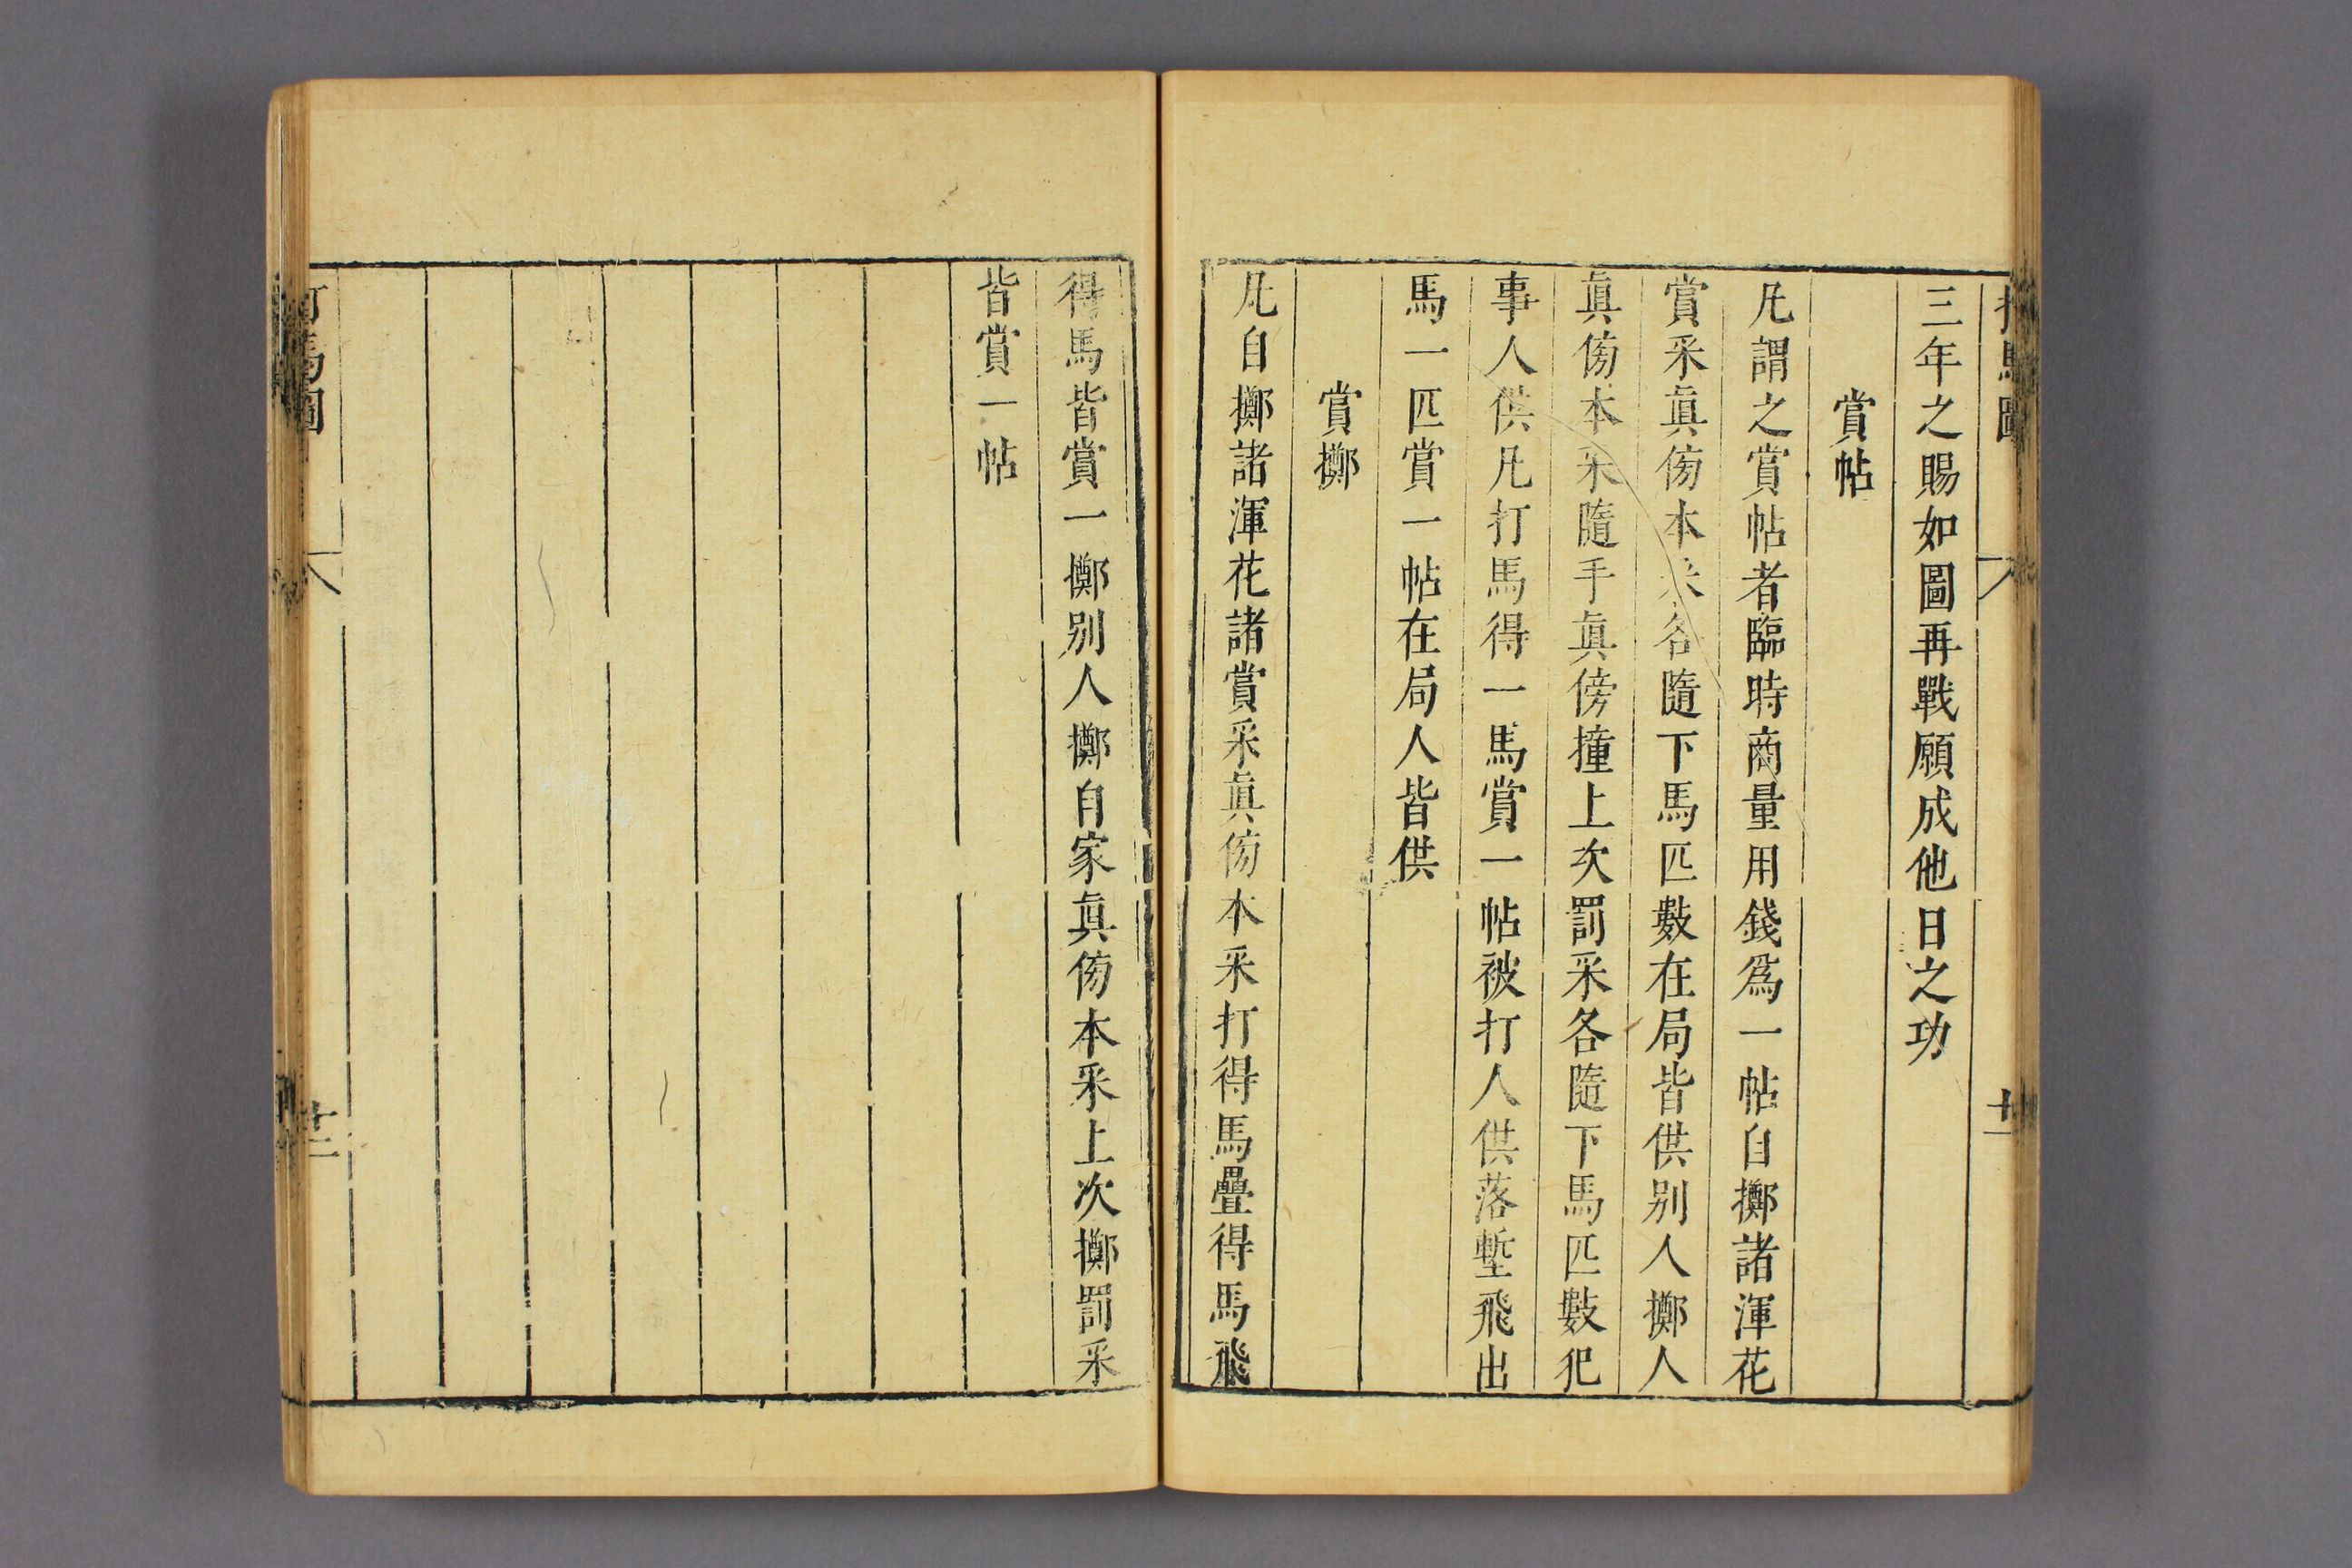 三年之賜如圖再戰願成他日之功
賞帖
凡謂之賞帖者臨時商量用錢爲一帖自擲諸渾花
賞采眞傍本采各隨下馬匹數在局皆供别人擲人
眞傍本采隨手眞傍撞上次罰采各隨下馬匹數犯
事人供凡打馬得一馬賞一帖被打人供落塹飛出
馬一匹賞一帖在局人皆供
賞擲
凡自擲諸渾花諸賞采眞傍本采打得馬疊得馬飛
得馬皆賞一擲别人擲自家眞傍本采上次擲罰采
皆賞一帖
打馬圖